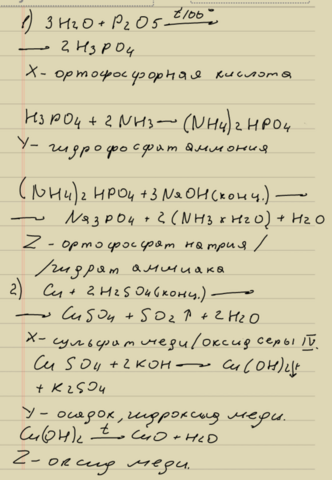 1) 3H2O + P2O5 t100° →
→ 2H3PO4
X - ортофосфорная кислота
H3PO4 + 2NH3 → (NH4)2HPO4
Y - гидрофосфат аммония
(NH4)2HPO4 + 3NaOH(конц.) →
→ Na3PO4 + 2(NH3 × H2O) + H2O
Z - ортофосфат натрия/
/гидрат аммиака
2) Cu + 2H2SO4(конц.) →
→ CuSO4 + SO2↑ + 2H2O
X - сульфат меди/оксид серы IV.
CuSO4 + 2KOH → Cu(OH)2↓+
+ K2SO4
Y - осадок, гидроксид меди.
Cu(OH)2 t→ CuO + H2O
Z - оксид меди.